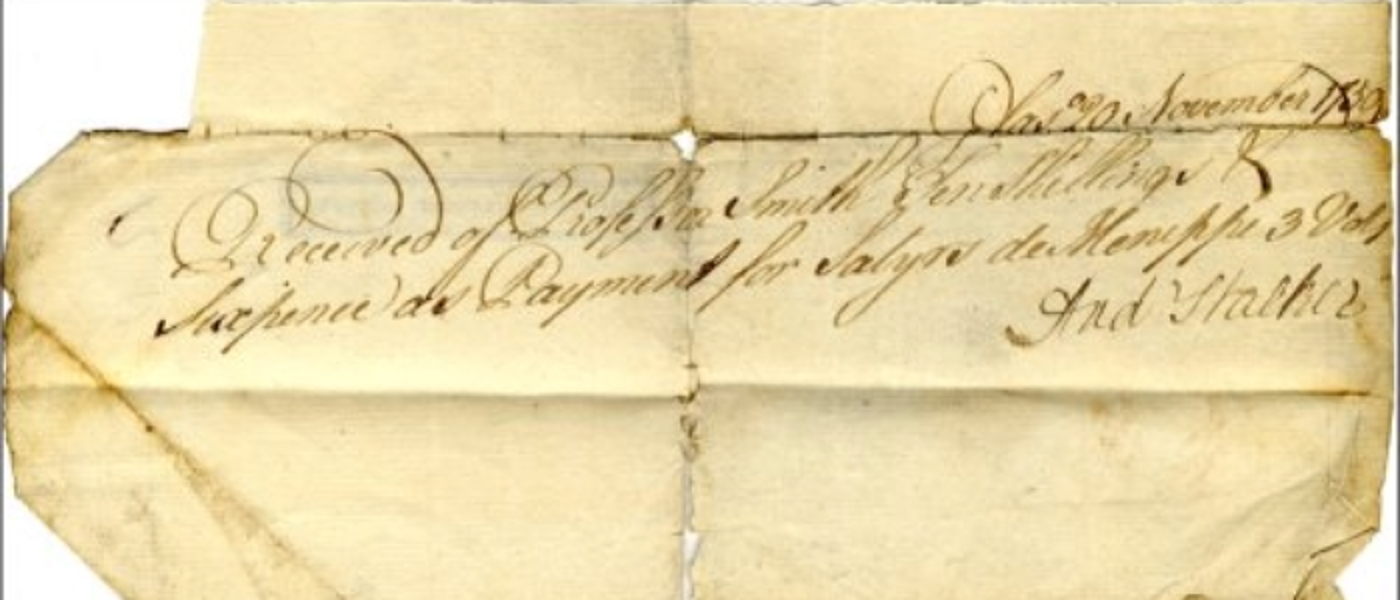 Glasgow 20 November 1759
Received of Professor Smith Ten Shillings &
Sixpence as Payment for Satyrs de Menippe 3 Vols
And Stalker